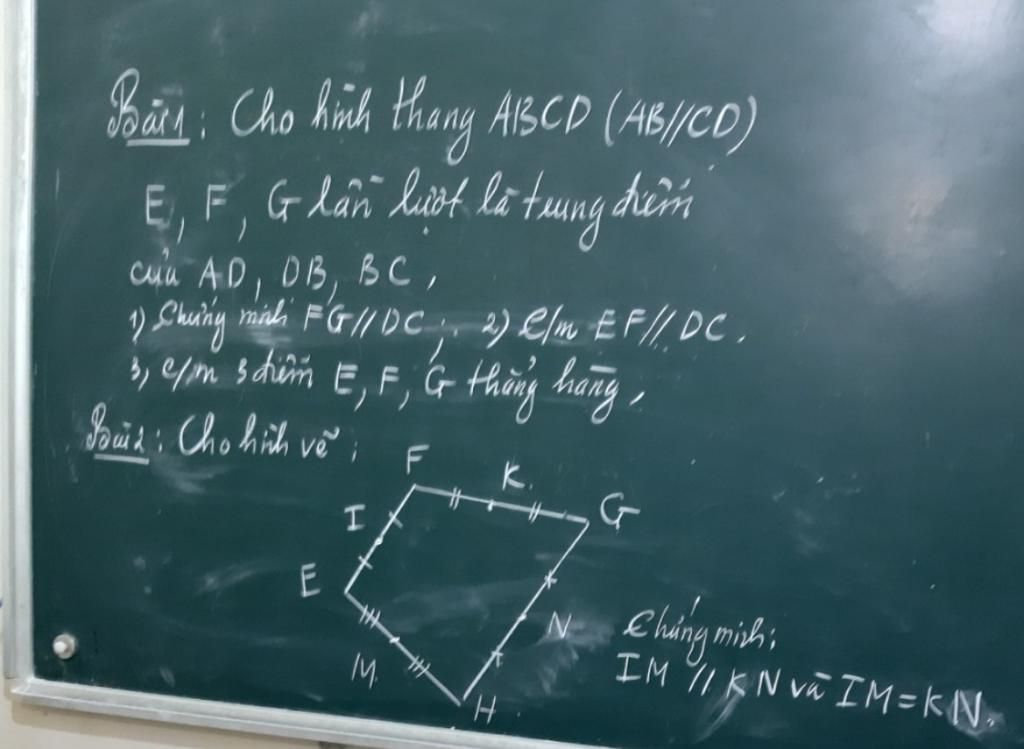 Bài 1: Cho hình thang ABCD (AB//CD)
E, F, G lần lượt là trung điểm
của AD, DB, BC,
1) Chứng minh FG // DC; 2) C/m EF // DC.
3, c/m 3 điểm E, F, G thẳng hàng,
Bài 2: Cho hình vẽ:
F
K
G
I
E
N
M
H
Chứng minh:
IM // KN và IM = KN.